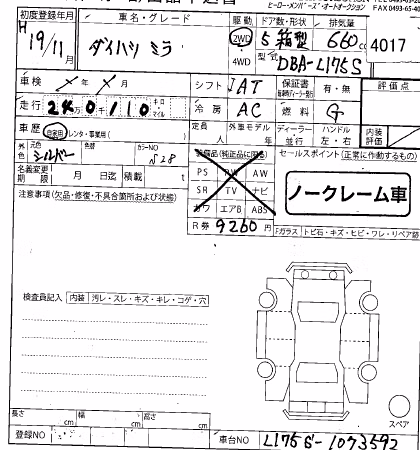 ヒーロー・メンバーズ・オートオークション FAX 0493-65-40
初度登録年月 車名・グレード 駆動 ドア数・形状 排気量
H 19/11月 ダイハツ ミラ 2WD 4WD 5 箱型 660cc 4017
型式 DBA-L175S
車検 年 月 シフト IAT 保証書 有・無 評価点
走行 240110 キロ マイル 冷房 AC 燃料 G
車歴 自家用 レンタ・事業用( ) 定員 人 外車モデル 年 ディーラー 並行 ハンドル 左・右 内装評価
外色 元色 シルバー 色替 カラーNO S28
装備品(純正品に限る) セールスポイント(正常に作動するもの)
名義変更期限 月 日迄 積載 t
PS PW AW
SR TV ナビ
カワ エアB ABS
ノークレーム車
注意事項(欠品・修復・不具合箇所および状態)
R券 9260円
Fガラス トビ石・キズ・ヒビ・ワレ・リペア跡
検査員記入 内装 汚レ・スレ・キズ・キレ・コゲ・穴
スペア
長さ cm 幅 cm 高さ cm
登録NO 車台NO L175S-1073592